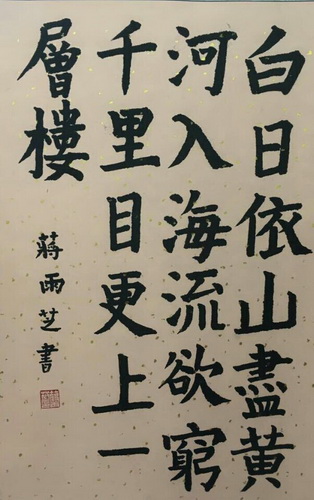 白日依山盡黄
河入海流欲窮
千里目更上一
層樓
蔣雨芝書